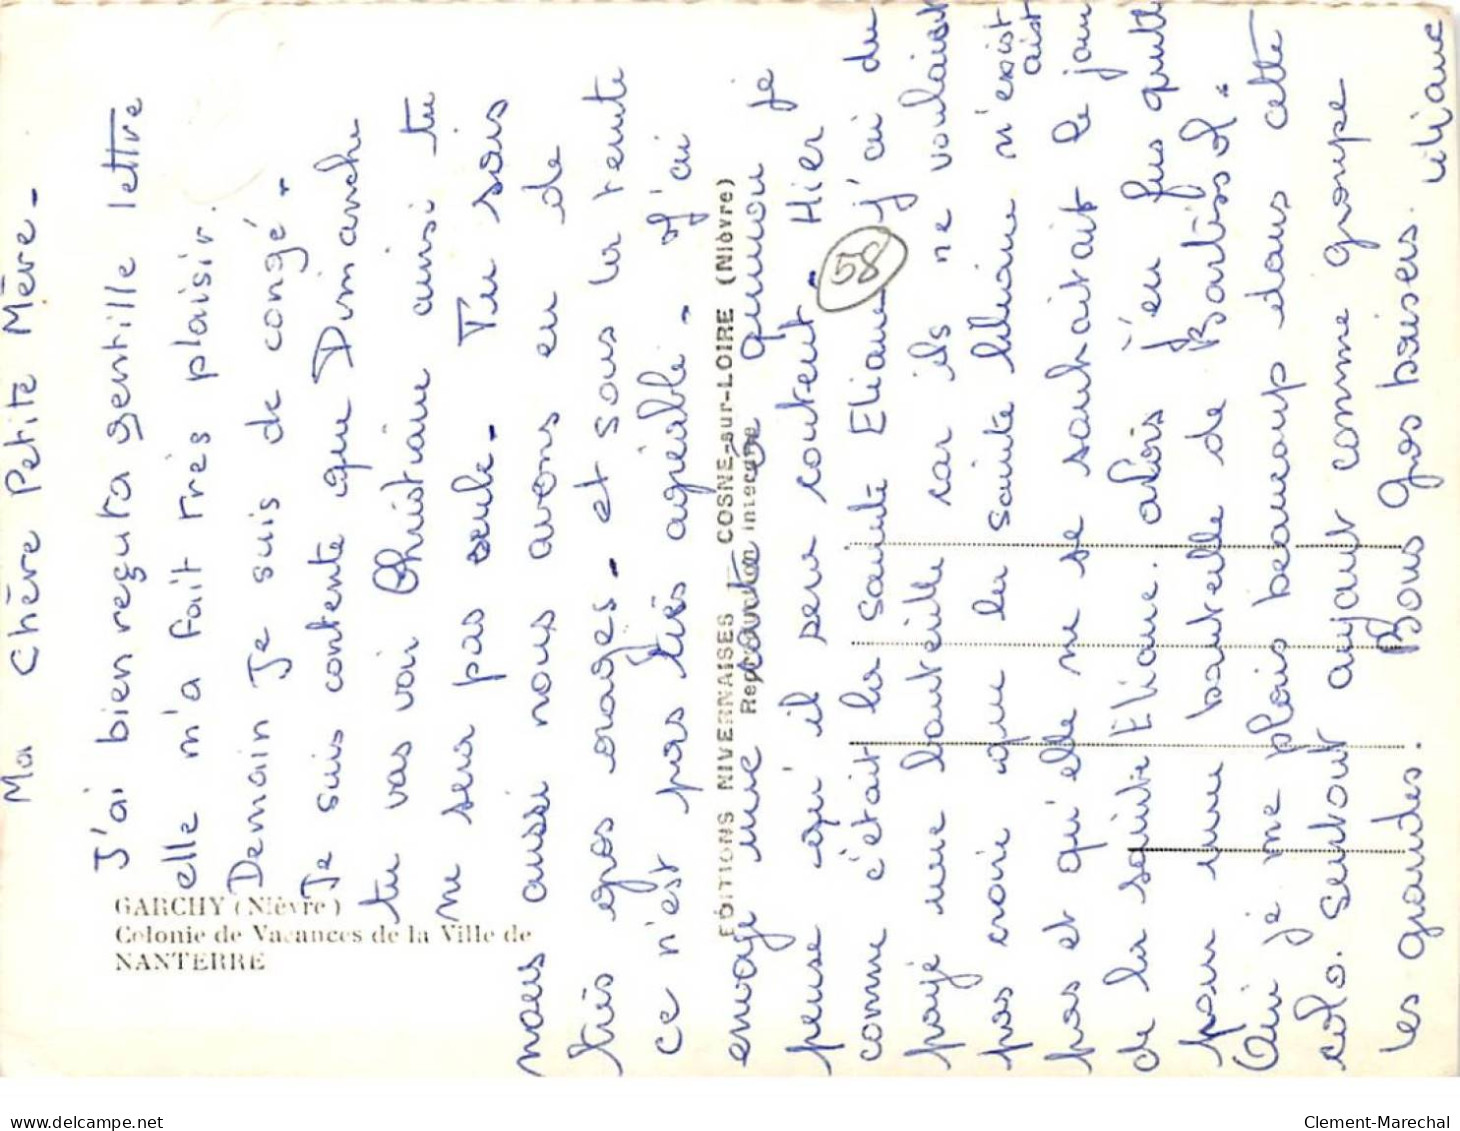 Ma Chère Petite Mère -
J'ai bien reçu ta gentille lettre
elle m'a fait très plaisir.
Demain Je suis de congé -
Je suis contente que Dimanche
tu vas voir Christiane ainsi tu
ne sera pas seule - Tu sais
nous aussi nous avons eu de
très gos orages - et sous la tente
ce n'est pas très agréable - J'ai
envoyé une carte à quinou je
pense qu'il sera content - Hier
comme c'était la sainte Eliane j'ai du
payé une bouteille car ils ne voulaist
pas croire que la sainte liliane n'exist
aist
pas et qu'elle me se souhaitait le jour
de la sainte Eliane. alors j'eu fus quitte
pour une bouteille de Bartissol.
Oui je me plais beaucoup dans cette
colo. surtout ayant comme groupe
les grandes. Bons gos baisers. liliane
58
GARCHY (Nièvre)
Colonie de Vacances de la Ville de
NANTERRE
EDITIONS NIVERNAISES COSNE-sur-LOIRE (Nièvre)
Reproduction interdite
delcampe.net
Clement-Marechal